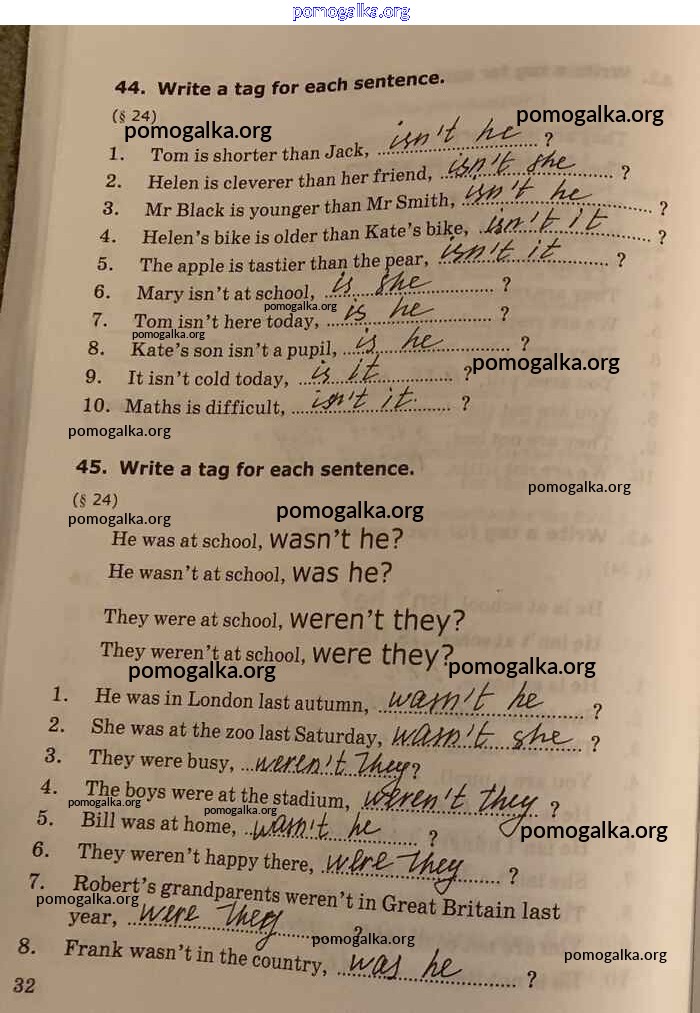 pomogalka.org
44. Write a tag for each sentence.
(§ 24)
pomogalka.org pomogalka.org
1. Tom is shorter than Jack, isn't he ?
2. Helen is cleverer than her friend, isn't she ?
3. Mr Black is younger than Mr Smith, isn't he ?
4. Helen's bike is older than Kate's bike, isn't it ?
5. The apple is tastier than the pear, isn't it ?
6. Mary isn't at school, is she ?
pomogalka.org
7. Tom isn't here today, is he ?
pomogalka.org
8. Kate's son isn't a pupil, is he ?
pomogalka.org
9. It isn't cold today, is it ?
10. Maths is difficult, isn't it ?
pomogalka.org
45. Write a tag for each sentence.
pomogalka.org
(§ 24)
pomogalka.org pomogalka.org
He was at school, wasn't he?
He wasn't at school, was he?
They were at school, weren't they?
They weren't at school, were they?
pomogalka.org pomogalka.org
1. He was in London last autumn, wasn't he ?
2. She was at the zoo last Saturday, wasn't she ?
3. They were busy, weren't they ?
4. The boys were at the stadium, weren't they ?
pomogalka.org pomogalka.org
5. Bill was at home, wasn't he ?
pomogalka.org
6. They weren't happy there, were they ?
7. Robert's grandparents weren't in Great Britain last
pomogalka.org
year, were they ?
pomogalka.org
8. Frank wasn't in the country, was he ?
pomogalka.org
32